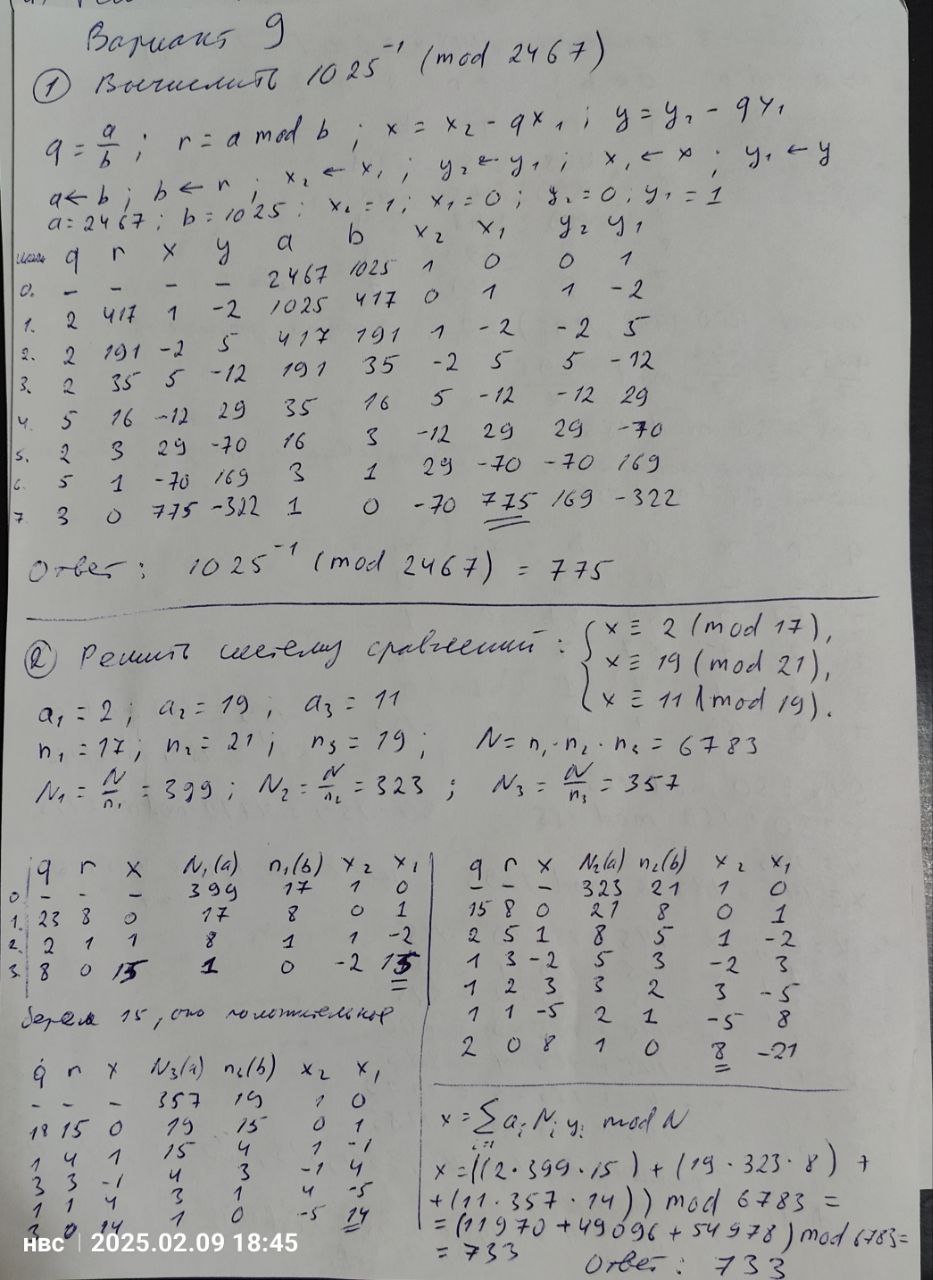 Вариант 9
① Вычислить 1025⁻¹ (mod 2467)
q = a/b ; r = a mod b ; x = x₂ - qx₁ ; y = y₂ - qy₁
a ← b ; b ← r ; x₂ ← x₁ ; y₂ ← y₁ ; x₁ ← x ; y₁ ← y
a = 2467 ; b = 1025 ; x₂ = 1 ; x₁ = 0 ; y₂ = 0 ; y₁ = 1
q r x y a b x₂ x₁ y₂ y₁
0. - - - - 2467 1025 1 0 0 1
1. 2 417 1 -2 1025 417 0 1 1 -2
2. 2 191 -2 5 417 191 1 -2 -2 5
3. 2 35 5 -12 191 35 -2 5 5 -12
4. 5 16 -12 29 35 16 5 -12 -12 29
5. 2 3 29 -70 16 3 -12 29 29 -70
6. 5 1 -70 169 3 1 29 -70 -70 169
7. 3 0 775 -322 1 0 -70 775 169 -322
Ответ : 1025⁻¹ (mod 2467) = 775
② Решить систему сравнений :
{ x ≡ 2 (mod 17),
x ≡ 19 (mod 21),
x ≡ 11 (mod 19).
a₁ = 2 ; a₂ = 19 ; a₃ = 11
n₁ = 17 ; n₂ = 21 ; n₃ = 19 ; N = n₁ · n₂ · n₃ = 6783
N₁ = N/n₁ = 399 ; N₂ = N/n₂ = 323 ; N₃ = N/n₃ = 357
q r x N₁(a) n₁(b) x₂ x₁
0 - - - 399 17 1 0
1. 23 8 0 17 8 0 1
2. 2 1 1 8 1 1 -2
3. 8 0 15 1 0 -2 15
берем 15, оно положительное
q r x N₂(a) n₂(b) x₂ x₁
- - - 323 21 1 0
15 8 0 21 8 0 1
2 5 1 8 5 1 -2
1 3 -2 5 3 -2 3
1 2 3 3 2 3 -5
1 1 -5 2 1 -5 8
2 0 8 1 0 8 -21
q r x N₃(a) n₂(b) x₂ x₁
- - - 357 19 1 0
18 15 0 19 15 0 1
1 4 1 15 4 1 -1
3 3 -1 4 3 -1 4
1 1 4 3 1 4 -5
3 0 14 1 0 -5 14
x = ∑ aᵢ Nᵢ yᵢ mod N
i=1
x = ((2 · 399 · 15) + (19 · 323 · 8) +
+ (11 · 357 · 14)) mod 6783 =
= (11970 + 49096 + 54978) mod 6783 =
= 733 Ответ : 733
нвс | 2025.02.09 18:45